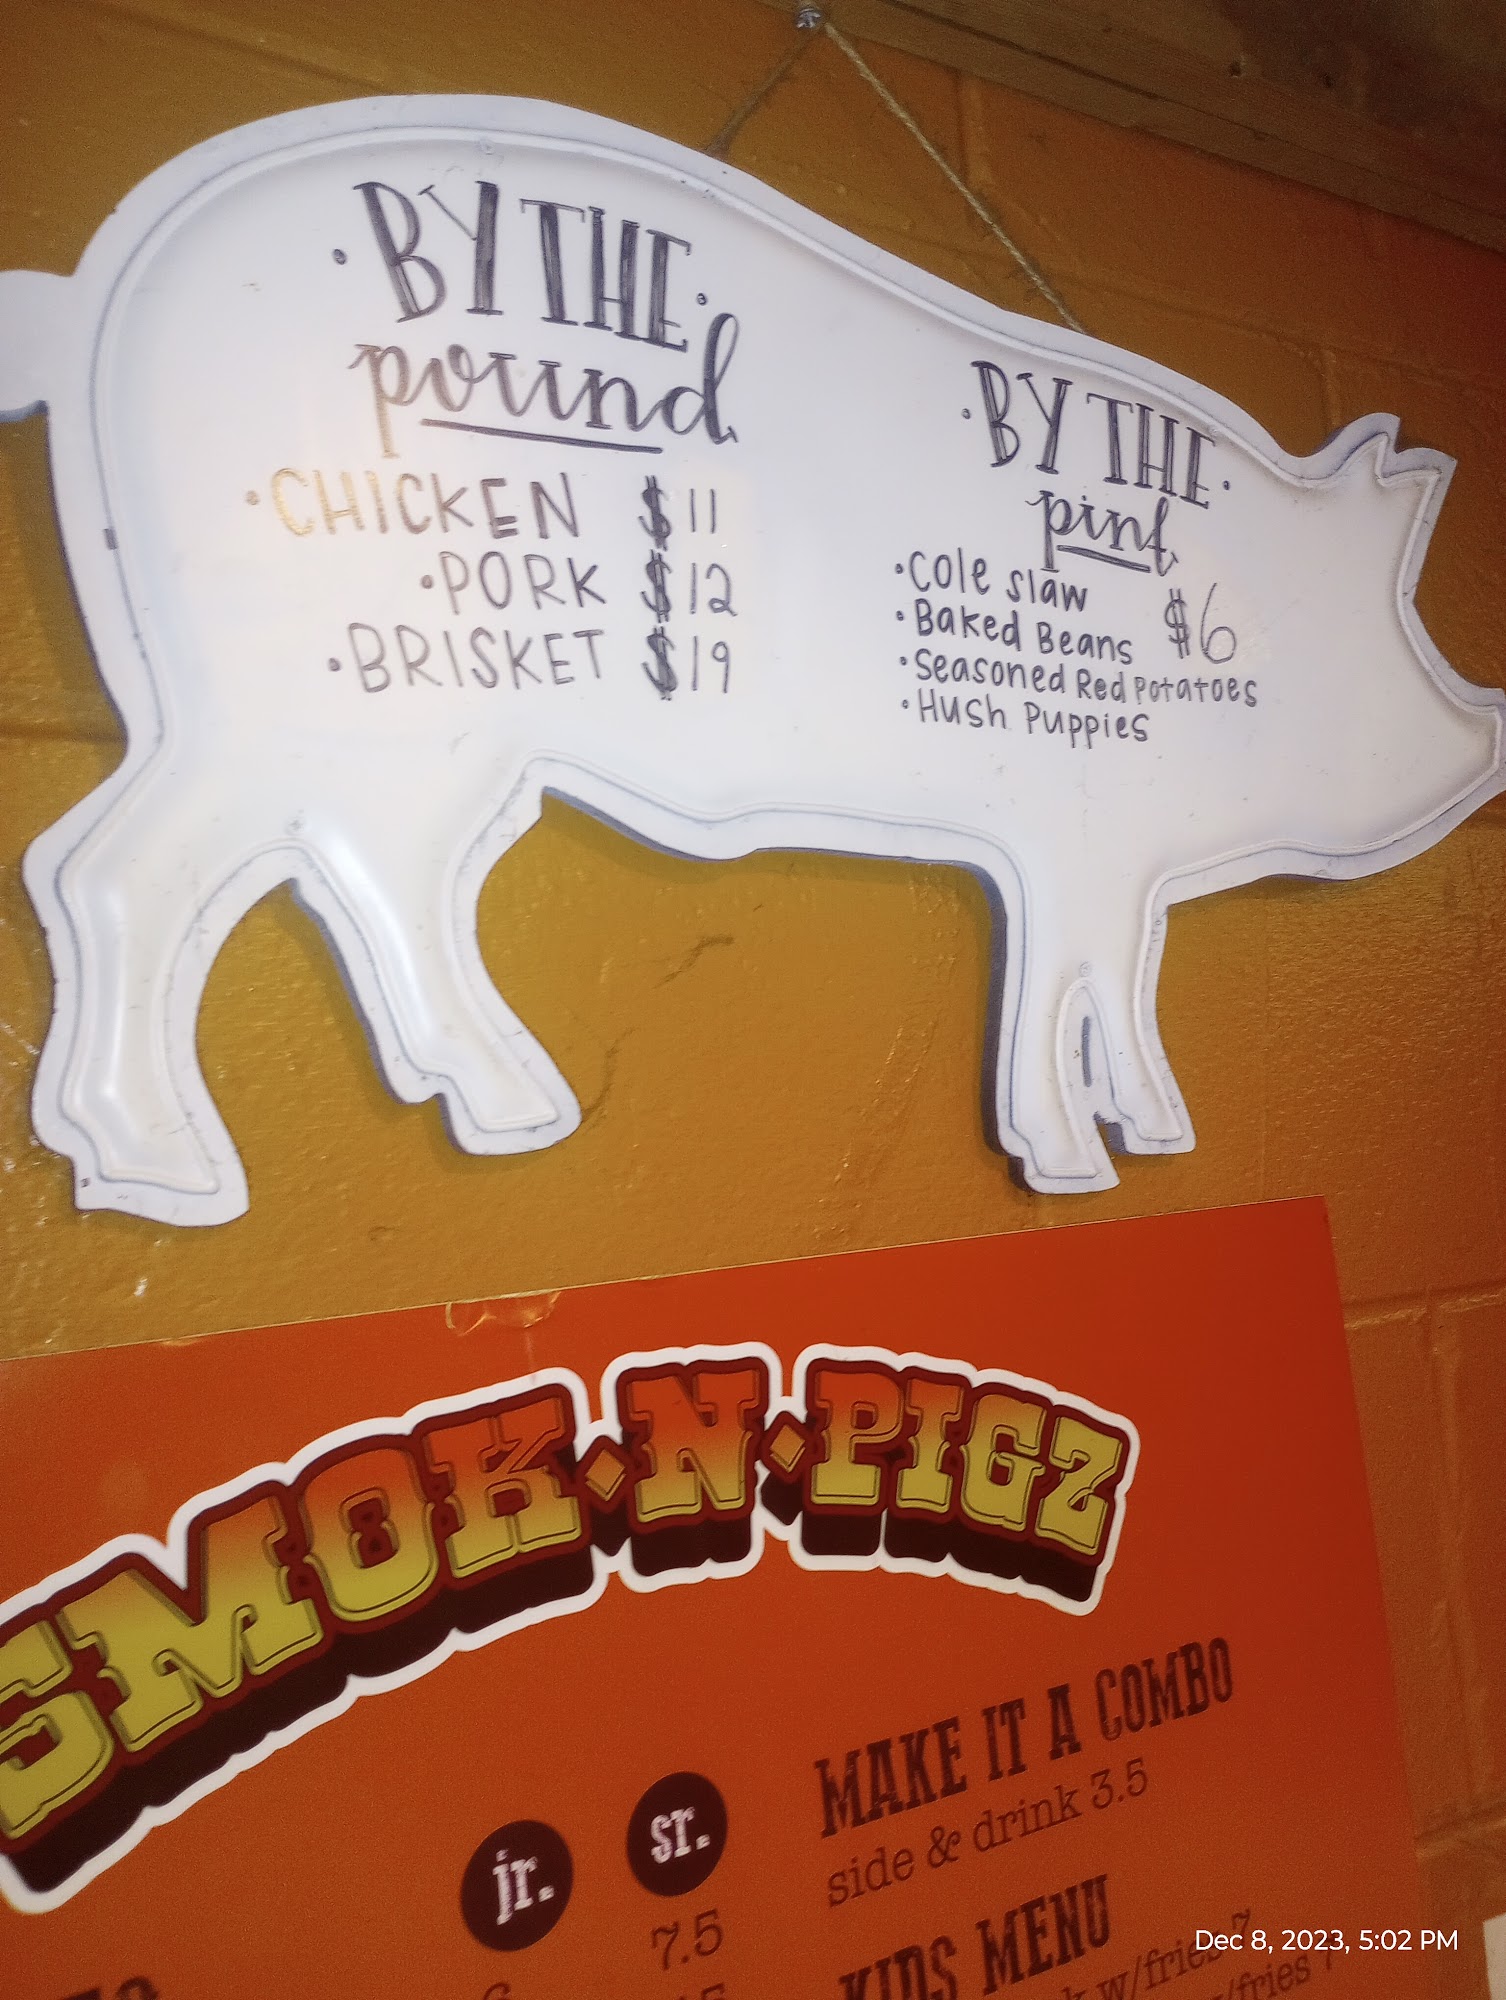 · BY THE ·
pound
· CHICKEN $11
· PORK $12
· BRISKET $19
· BY THE ·
pint
· Cole Slaw
· Baked Beans $6
· Seasoned Red Potatoes
· Hush Puppies
SMOK◆N◆PIGZ
MAKE IT A COMBO
side & drink 3.5
jr. sr.
7.5
KIDS MENU
w/fries 7
/fries
Dec 8, 2023, 5:02 PM